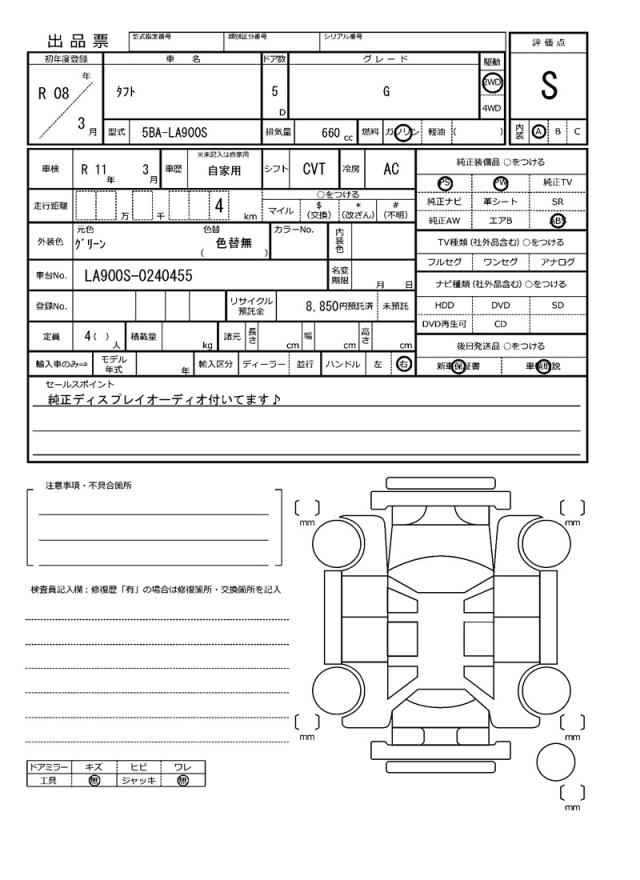 出品票
型式指定番号 類別区分番号 シリアル番号
初年度登録 車名 ドア数 グレード 駆動 評価点
R 08 年 3 月
ﾀﾌﾄ 5 D G 2WD 4WD S
型式 5BA-LA900S 排気量 660 cc 燃料 ガソリン 軽油 ( ) 内装 A B C
車検 R 11 年 3 月 車歴 ※未記入は自家用 自家用 シフト CVT 冷房 AC
純正装備品 ○をつける
PS PW 純正TV
純正ナビ 革シート SR
純正AW エアB ABS
走行距離 万 千 4 km ○をつける
マイル $(交換) *(改ざん) #(不明)
外装色 元色 ｸﾞﾘｰﾝ 色替 色替無 ( ) カラーNo. 内装色
TV種類(社外品含む) ○をつける
フルセグ ワンセグ アナログ
車台No. LA900S-0240455 名変期限 月 日
ナビ種類(社外品含む) ○をつける
登録No. リサイクル預託金 8,850円預託済 未預託
HDD DVD SD
DVD再生可 CD
定員 4( ) 人 積載量 kg 諸元 長さ cm 幅 cm 高さ cm
後日発送品 ○をつける
輸入車のみ⇒ モデル年式 年 輸入区分 ディーラー 並行 ハンドル 左 右
新車保証書 車輌取説
セールスポイント
純正ディスプレイオーディオ付いてます♪
注意事項・不具合箇所
mm
mm
検査員記入欄：修復歴「有」の場合は修復箇所・交換箇所を記入
mm
mm
ドアミラー キズ ヒビ ワレ
工具 無 ジャッキ 無
mm